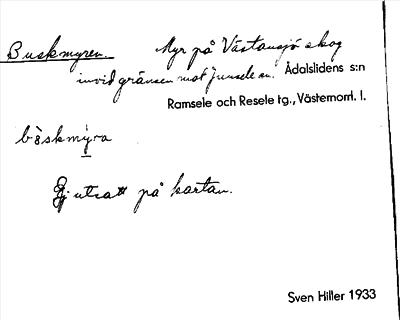 Buskmyren. Myr på Västansjö skog
invid gränsen mot Junsele sn. Ådalslidens s:n
Ramsele och Resele tg., Västernorrl. l.
bòskmỳra
Ej utsatt på kartan.
Sven Hiller 1933